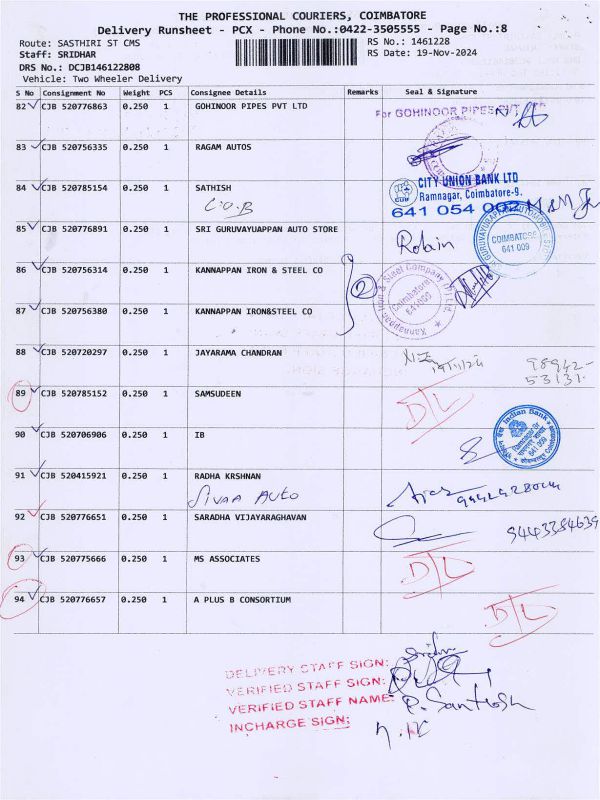 THE PROFESSIONAL COURIERS, COIMBATORE
Delivery Runsheet - PCX - Phone No.:0422-3505555 - Page No.:8
Route: SASTHIRI ST CMS RS No.: 1461228
Staff: SRIDHAR RS Date: 19-Nov-2024
DRS No.: DCJB146122808
Vehicle: Two Wheeler Delivery
S No Consignment No Weight PCS Consignee Details Remarks Seal & Signature
82 CJB 520776863 0.250 1 GOHINOOR PIPES PVT LTD
For GOHINOOR PIPES PVT
83 CJB 520756335 0.250 1 RAGAM AUTOS
84 CJB 520785154 0.250 1 SATHISH
C.O.B
CITY UNION BANK LTD
Ramnagar, Coimbatore-9.
641 054 002
85 CJB 520776891 0.250 1 SRI GURUVAYUAPPAN AUTO STORE
Robin
COIMBATORE
641 009
86 CJB 520756314 0.250 1 KANNAPPAN IRON & STEEL CO
2
Kannappan Iron & Steel Company (P) Ltd.
(Coimbatore)
641009
87 CJB 520756380 0.250 1 KANNAPPAN IRON&STEEL CO
88 CJB 520720297 0.250 1 JAYARAMA CHANDRAN
19/11/24
98942-
53131.
89 CJB 520785152 0.250 1 SAMSUDEEN
D/L
90 CJB 520706906 0.250 1 IB
Indian Bank
641 009
91 CJB 520415921 0.250 1 RADHA KRSHNAN
SIVAA AUTO
92 CJB 520776651 0.250 1 SARADHA VIJAYARAGHAVAN
9443384639
93 CJB 520775666 0.250 1 MS ASSOCIATES
D/L
94 CJB 520776657 0.250 1 A PLUS B CONSORTIUM
D/L
DELIVERY STAFF SIGN:
VERIFIED STAFF SIGN:
VERIFIED STAFF NAME: P. Santhosh
INCHARGE SIGN: